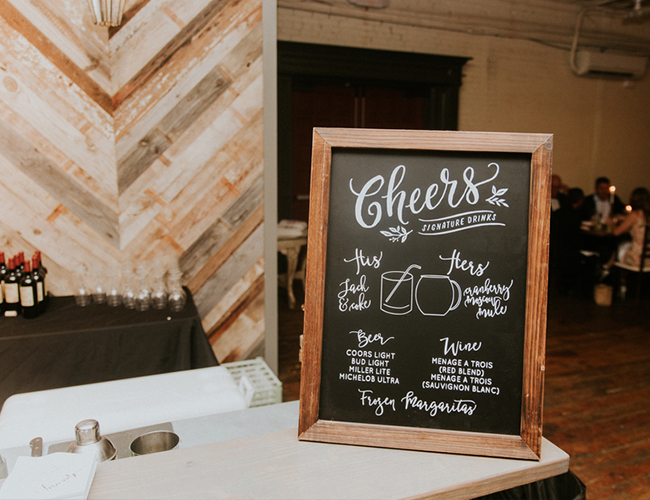 Cheers
SIGNATURE DRINKS
His
Jack
& coke
Hers
cranberry
moscow
mule
Beer
COORS LIGHT
BUD LIGHT
MILLER LITE
MICHELOB ULTRA
Wine
MENAGE A TROIS
(RED BLEND)
MENAGE A TROIS
(SAUVIGNON BLANC)
Frozen Margaritas